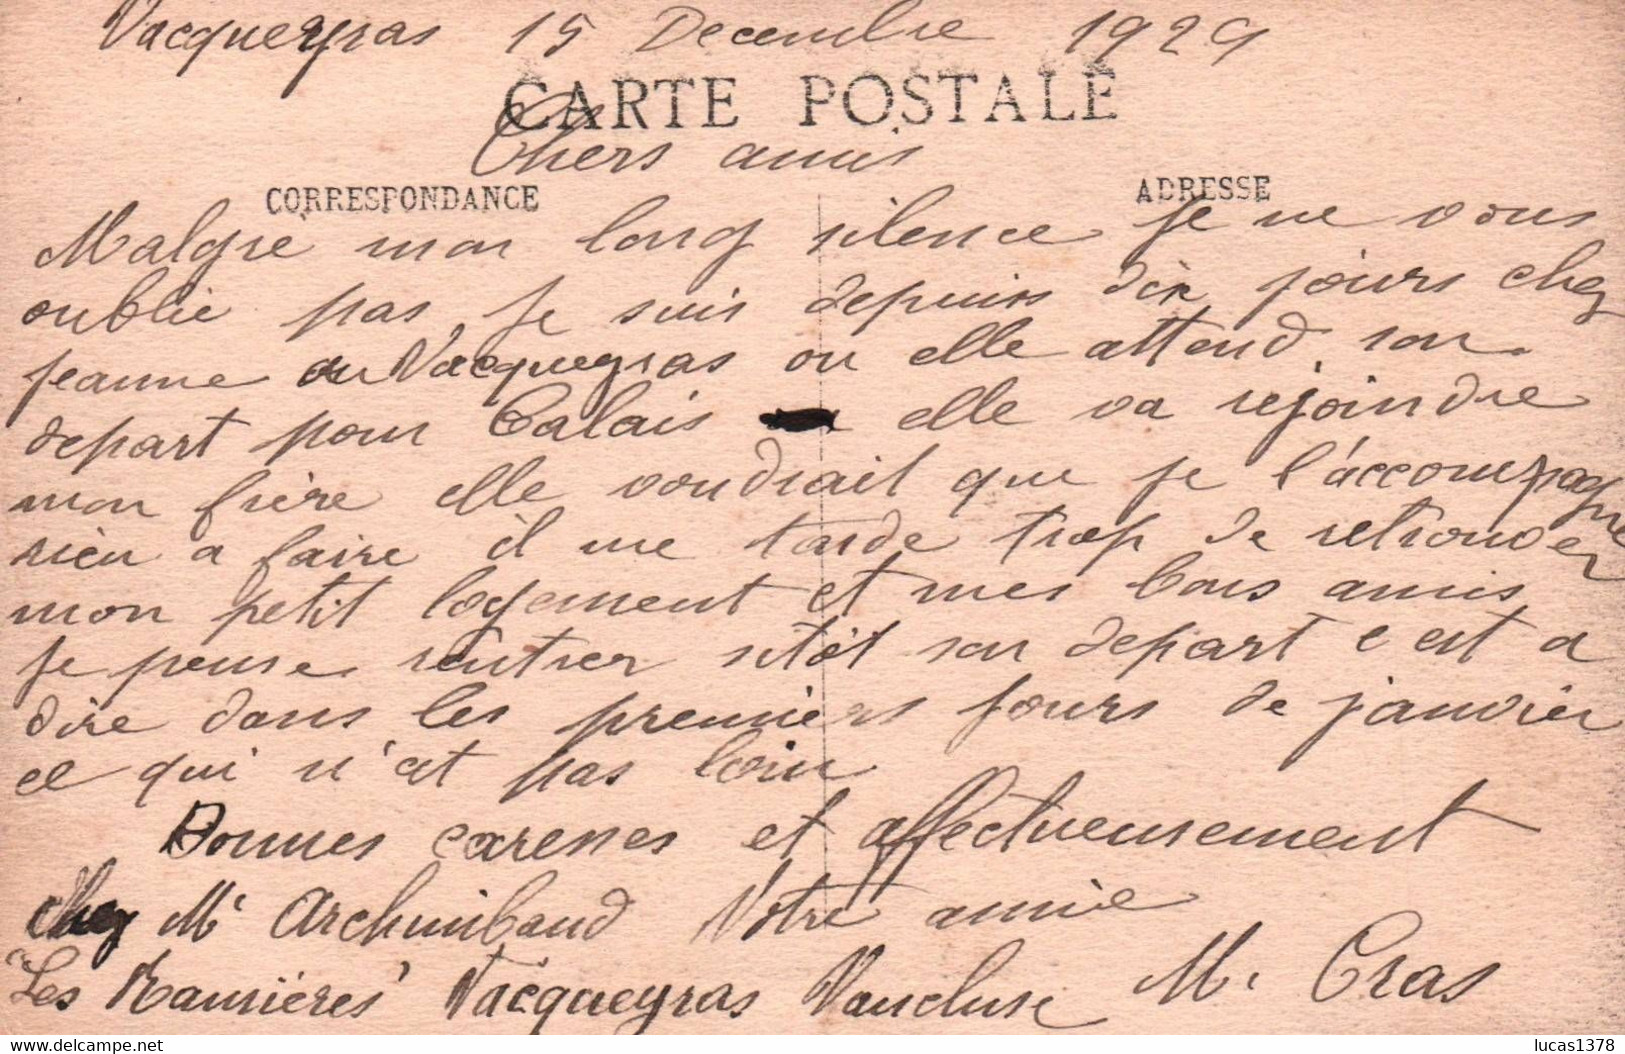 Vacqueyras 15 Decembre 1929
CARTE POSTALE
Chers amis
CORRESPONDANCE
ADRESSE
Malgré mon long silence je ne vous
oublie pas je suis depuis dix jours chez
jeanne a Vacqueyras ou elle attend son
depart pour Calais elle va rejoindre
mon frère elle voudrait que je l'accompagne
rien a faire il me tarde trop de retrouver
mon petit logement et mes bons amis
je pense rentrer sitôt son depart c est a
dire dans les premiers jours de janvier
ce qui n'est pas loin
Bonnes caresses et affectueusement
chez Mr Archimbaud Votre amie
"Les Vacqueyras Vaucluse M. Cras
lucas1378
www.delcampe.net